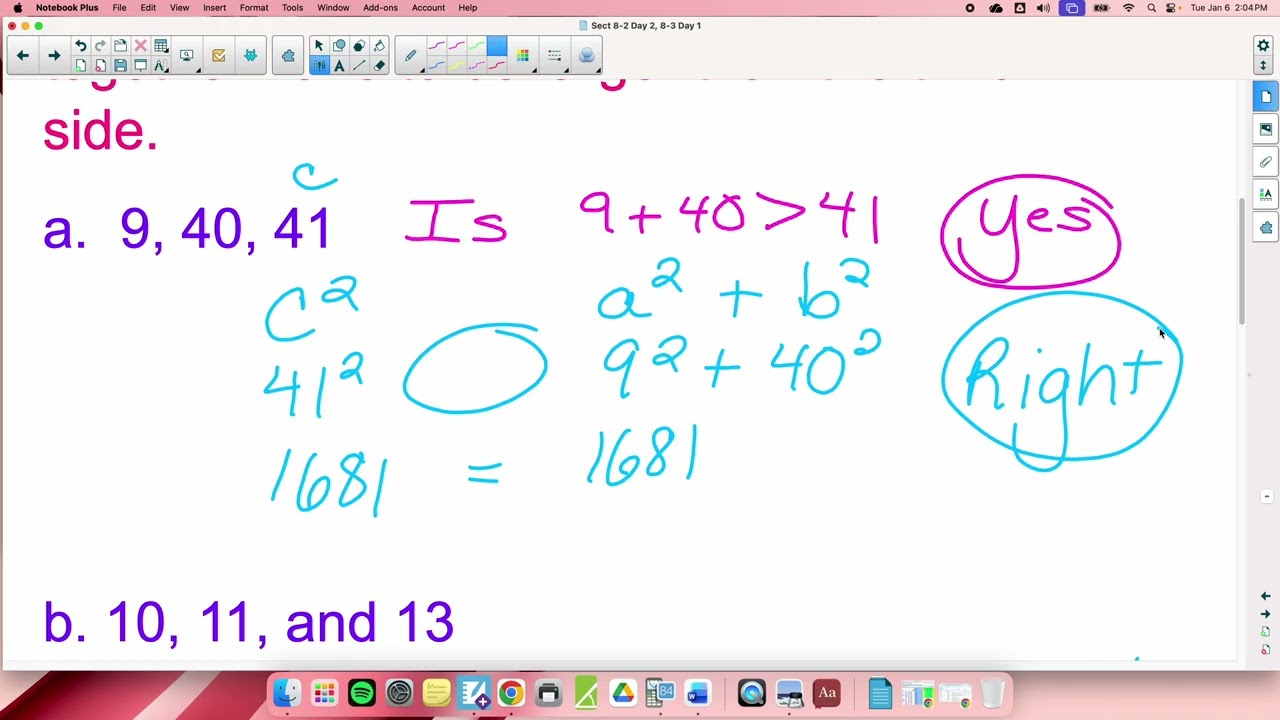 Notebook Plus File Edit View Insert Format Tools Window Add-ons Account Help Tue Jan 6 2:04PM
Sect 8-2 Day 2, 8-3 Day 1
side.
c
a. 9, 40, 41 Is 9 + 40 > 41 Yes
c² a² + b²
41² 9² + 40² Right
1681 = 1681
b. 10, 11, and 13
84
Aa